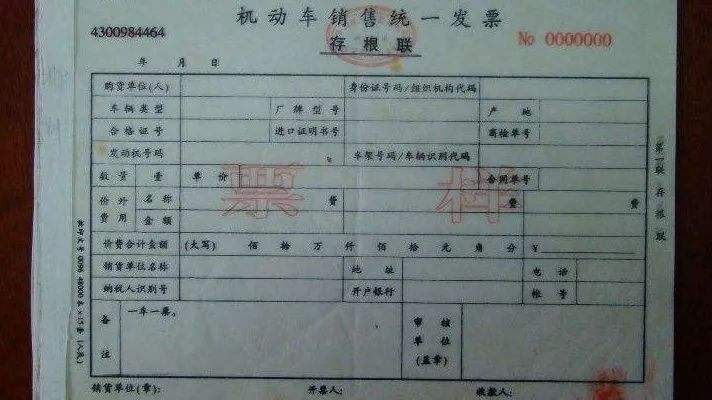 机动车销售统一发票
4300984464
存根联
No 0000000
年 月 日
购货单位(人) 身份证号码/组织机构代码
车辆类型 厂牌型号 产地
合格证号 进口证明书号 商检单号
发动机号码 车架号码/车辆识别代码
数量 壹 单价 合同单号
票样
价外费用 名称 费 费 费
金额
价费合计金额 (大写) 佰 拾 万 仟 佰 拾 元 角 分 ¥
销货单位名称 地址 电话
纳税人识别号 开户银行 帐号
备注 一车一票。 审核单位(盖章)
销货单位(章): 开票人: 收款人:
第一联 存根联